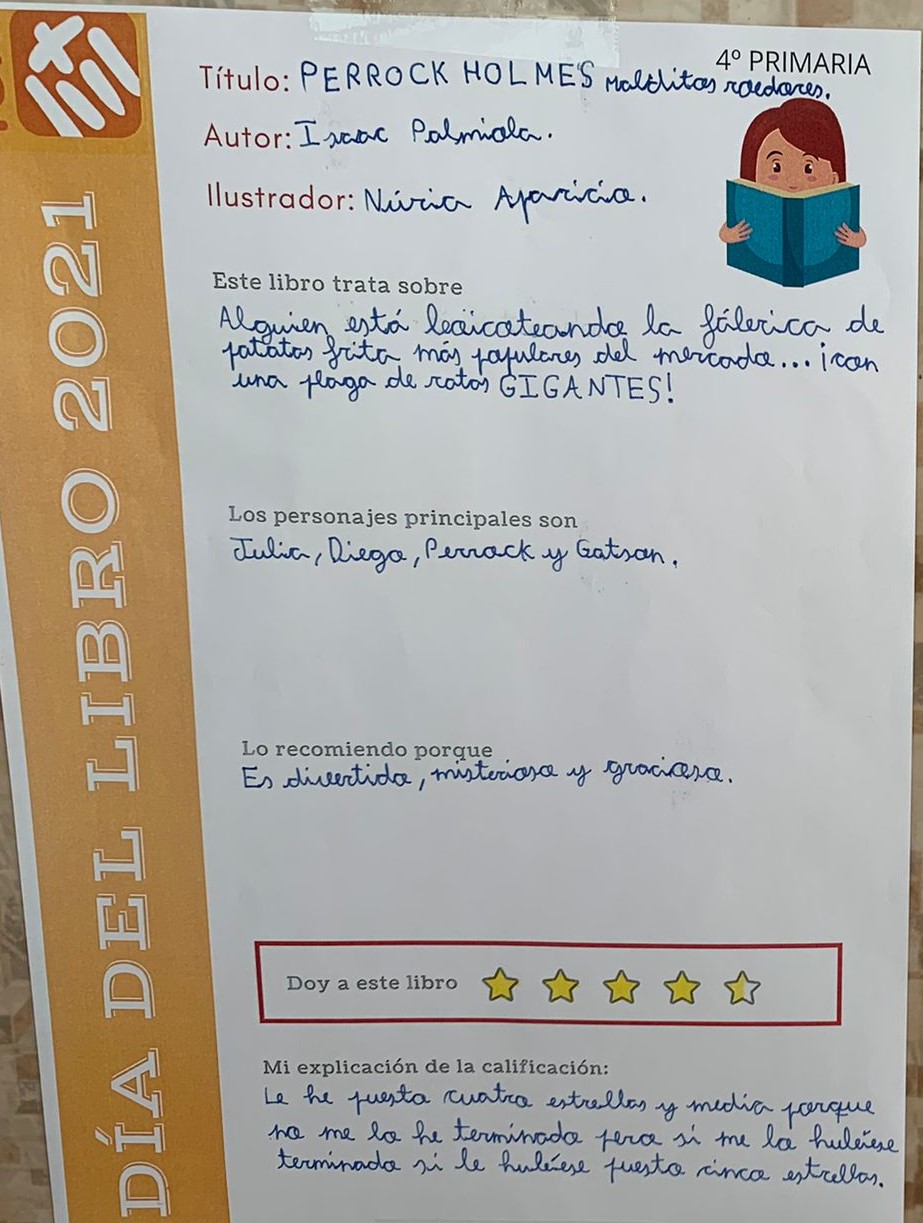 4º PRIMARIA
Título: PERROCK HOLMES Malditos roedores.
Autor: Isaac Palmiola.
Ilustrador: Núria Aparicio.
Este libro trata sobre
Alguien está boicoteando la fábrica de
patatas frita más populares del mercado... ¡con
una plaga de ratas GIGANTES!
Los personajes principales son
Julia, Diego, Perrock y Gatson.
Lo recomiendo porque
Es divertido, misterioso y gracioso.
Doy a este libro
Mi explicación de la calificación:
Le he puesto cuatro estrellas y media porque
no me lo he terminado pero si me lo hubiese
terminado si le hubiese puesto cinco estrellas.
DÍA DEL LIBRO 2021